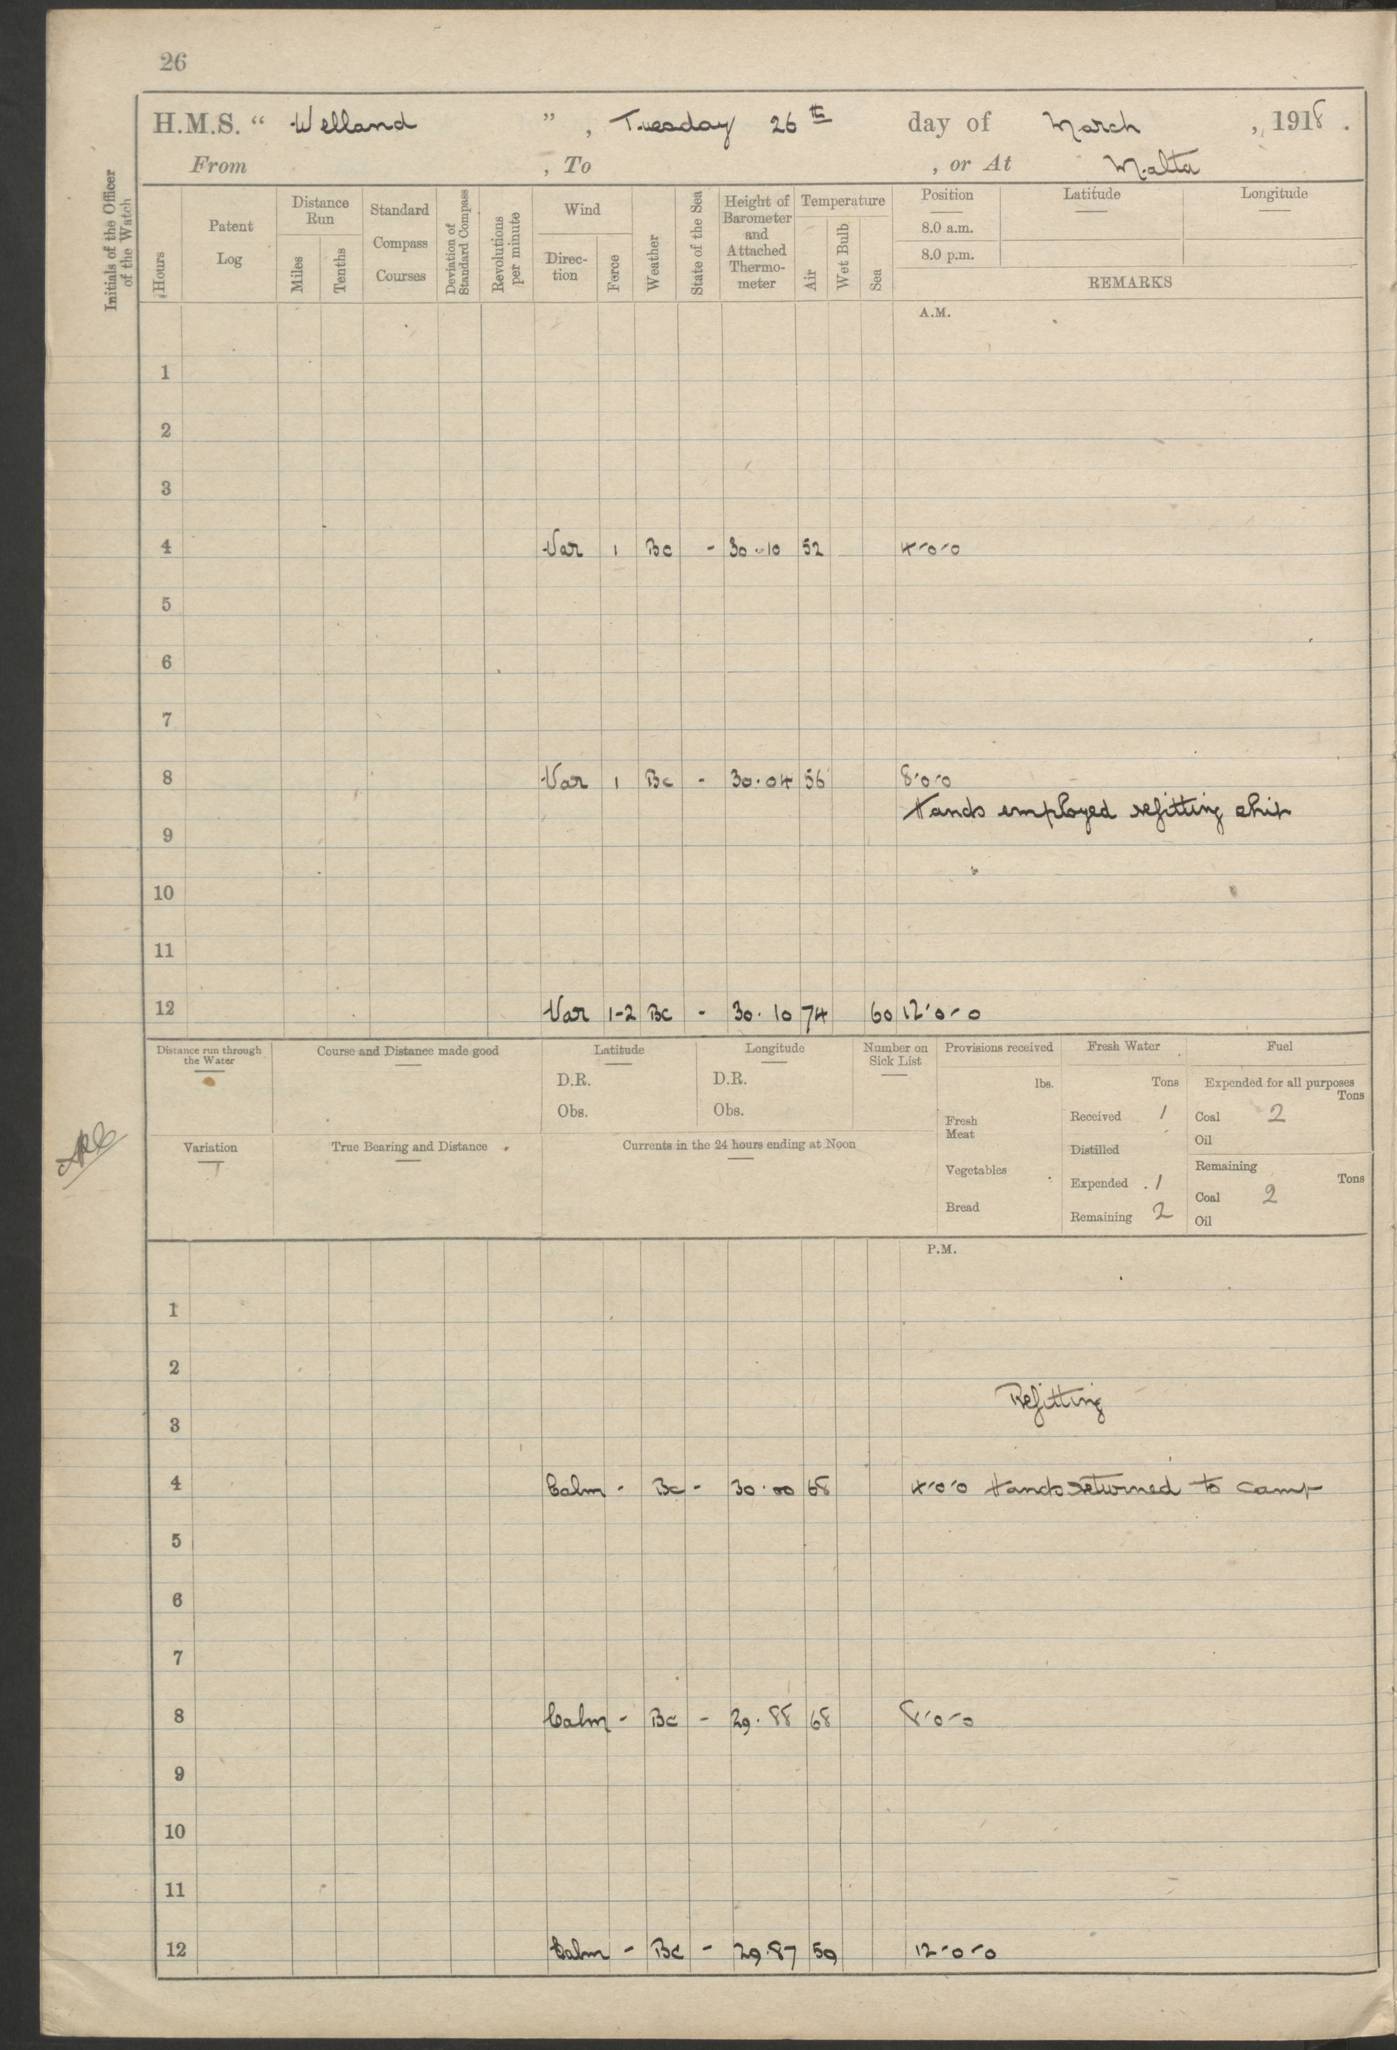 26
H.M.S. " Welland " , Tuesday 26th day of March , 1918 .
From , To , or At Malta
Initials of the Officer of the Watch
Hours
Patent Log
Distance Run
Miles
Tenths
Standard Compass Courses
Deviation of Standard Compass
Revolutions per minute
Wind
Direction
Force
Weather
State of the Sea
Height of Barometer and Attached Thermometer
Temperature
Air
Wet Bulb
Sea
Position Latitude Longitude
8.0 a.m.
8.0 p.m.
REMARKS
A.M.
1
2
3
4 Var 1 Bc - 30.10 52 4.0.0
5
6
7
8 Var 1 Bc - 30.04 56 8.0.0
Hands employed refitting ship
9
10
11
12 Var 1-2 Bc - 30.10 74 60 12.0.0
Distance run through the Water
Course and Distance made good
Latitude
D.R.
Obs.
Longitude
D.R.
Obs.
Number on Sick List
Provisions received
lbs.
Fresh Meat
Vegetables
Bread
Fresh Water
Tons
Received 1
Distilled
Expended 1
Remaining 2
Fuel
Expended for all purposes
Tons
Coal 2
Oil
Remaining
Tons
Coal 2
Oil
Variation
True Bearing and Distance
Currents in the 24 hours ending at Noon
P.M.
1
2
Refitting
3
4 Calm - Bc - 30.00 68 4.0.0 Hands returned to camp
5
6
7
8 Calm - Bc - 29.88 68 8.0.0
9
10
11
12 Calm - Bc - 29.87 59 12.0.0